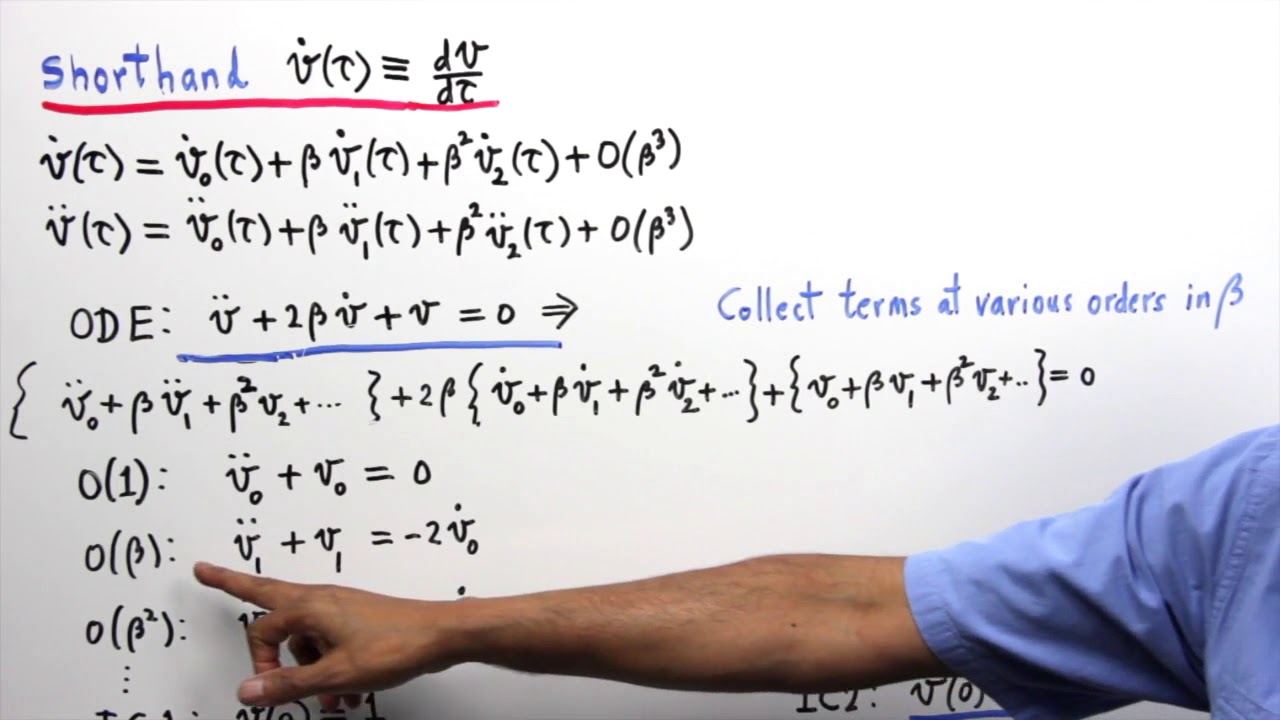 Shorthand v̇(τ) ≡ dv/dτ
v̇(τ) = v̇₀(τ) + β v̇₁(τ) + β² v̇₂(τ) + O(β³)
v̈(τ) = v̈₀(τ) + β v̈₁(τ) + β² v̈₂(τ) + O(β³)
ODE: v̈ + 2β v̇ + v = 0 ⇒
Collect terms at various orders in β
{ v̈₀ + β v̈₁ + β² v₂ + ... } + 2β { v̇₀ + β v̇₁ + β² v̇₂ + ... } + { v₀ + β v₁ + β² v₂ + .. } = 0
O(1): v̈₀ + v₀ = 0
O(β): v̈₁ + v₁ = -2 v̇₀
O(β²):
⋮
v(0) = 1
IC2: v(0)